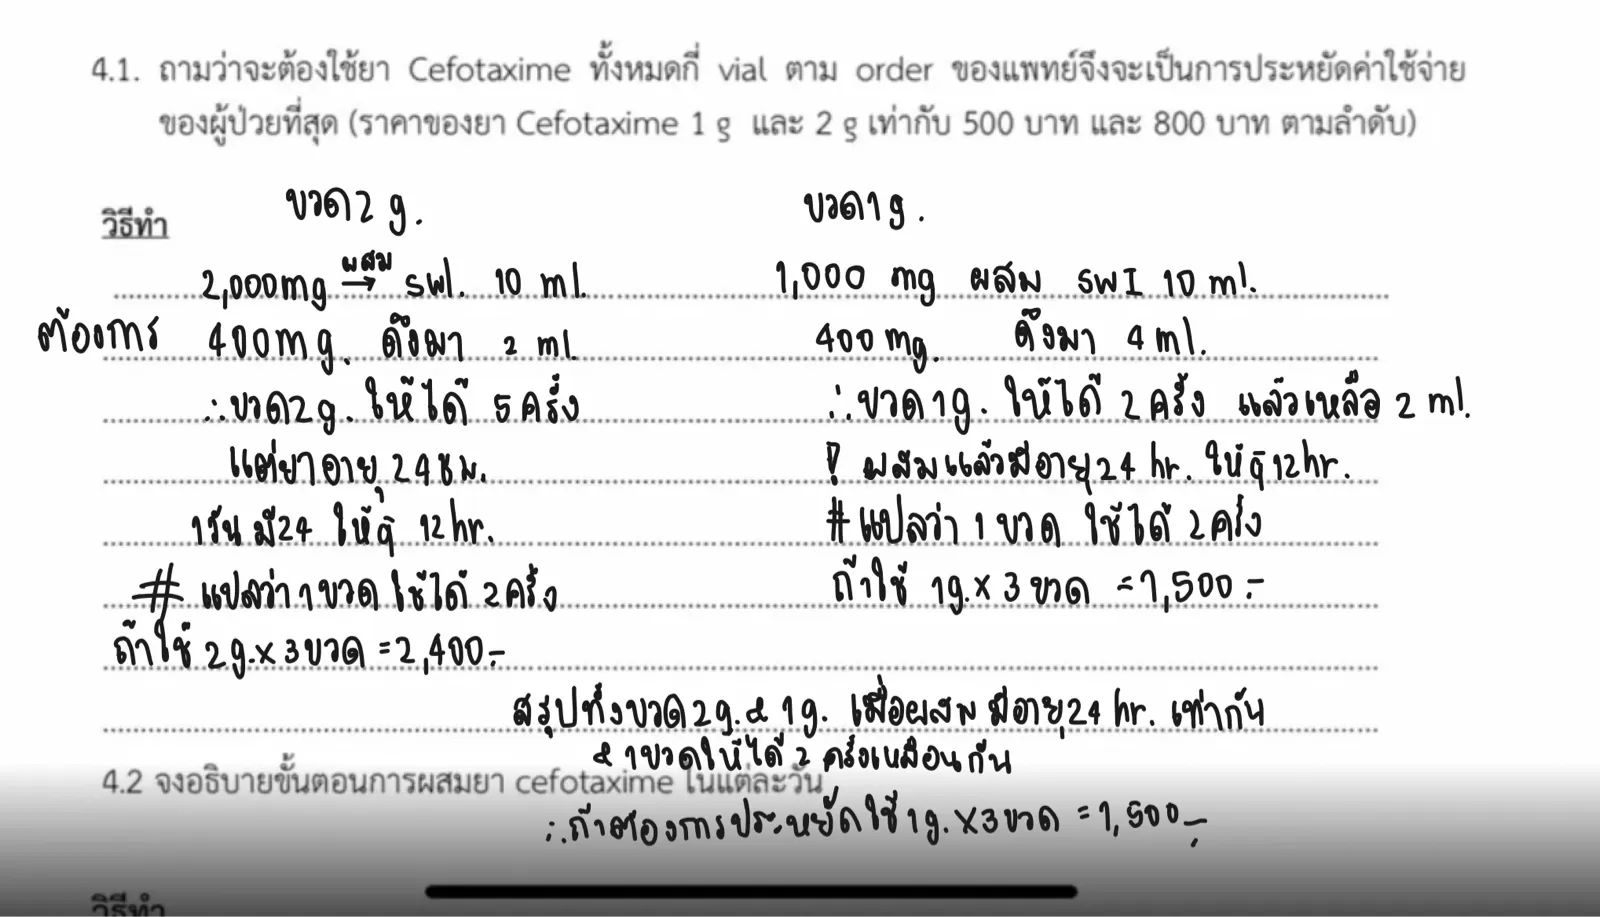 4.1. ถามว่าจะต้องใช้ยา Cefotaxime ทั้งหมดกี่ vial ตาม order ของแพทย์จึงจะเป็นการประหยัดค่าใช้จ่าย
ของผู้ป่วยที่สุด (ราคาของยา Cefotaxime 1 g และ 2 g เท่ากับ 500 บาท และ 800 บาท ตามลำดับ)
วิธีทำ
ขวด 2 g.
2,000 mg ผสม → SWI. 10 ml.
ต้องการ 400 mg. ดึงมา 2 ml.
∴ ขวด 2g. ให้ได้ 5 ครั้ง
แต่ยาอายุ 24 ชม.
1 วัน มี 24 ให้ทุ 12 hr.
# แปลว่า 1 ขวด ใช้ได้ 2 ครั้ง
ถ้าใช้ 2g. x 3 ขวด = 2,400.-
ขวด 1 g.
1,000 mg ผสม SWI 10 ml.
400 mg. ดึงมา 4 ml.
∴ ขวด 1g. ให้ได้ 2 ครั้ง แล้วเหลือ 2 ml.
! ผสมแล้วมีอายุ 24 hr. ให้ทุ 12 hr.
# แปลว่า 1 ขวด ใช้ได้ 2 ครั้ง
ถ้าใช้ 1g. x 3 ขวด = 1,500.-
สรุปทั้งขวด 2g. & 1g. เมื่อผสม มีอายุ 24 hr. เท่ากัน
& 1 ขวดให้ได้ 2 ครั้งเหมือนกัน
∴ ถ้าต้องการประหยัดใช้ 1g. x 3 ขวด = 1,500.-
4.2 จงอธิบายขั้นตอนการผสมยา cefotaxime ในแต่ละวัน
วิธีทำ